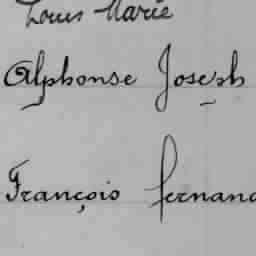 Louis Marie
Alphonse Joseph
François fernand